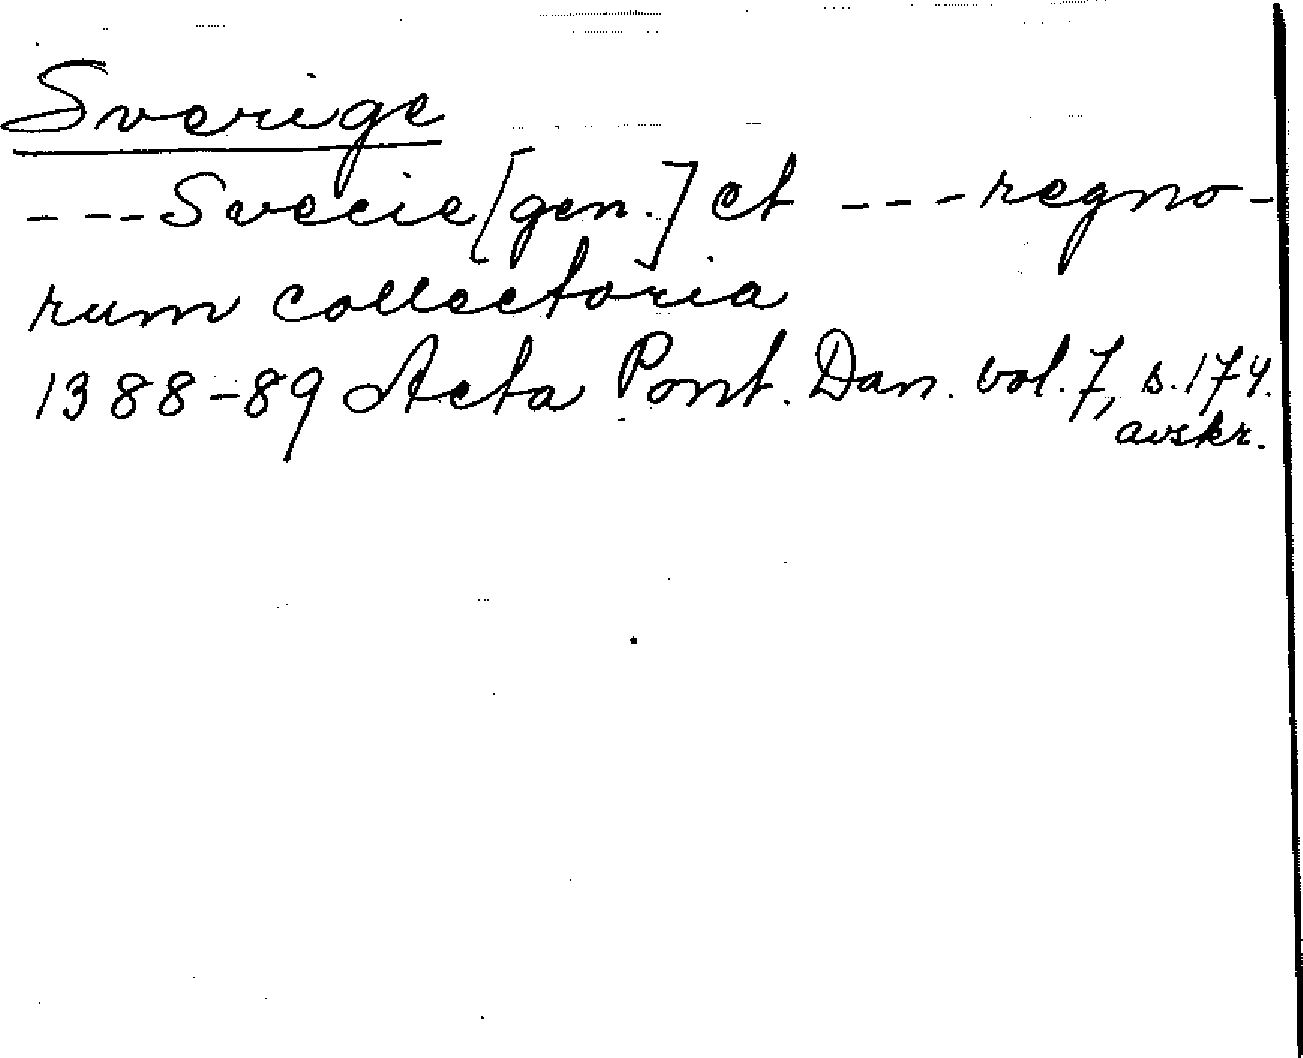 Sverige
---Svecie [gen.] et ---regno-
rum collectoria
1388-89 Acta Pont. Dan. vol. 7, s. 174.
avskr.